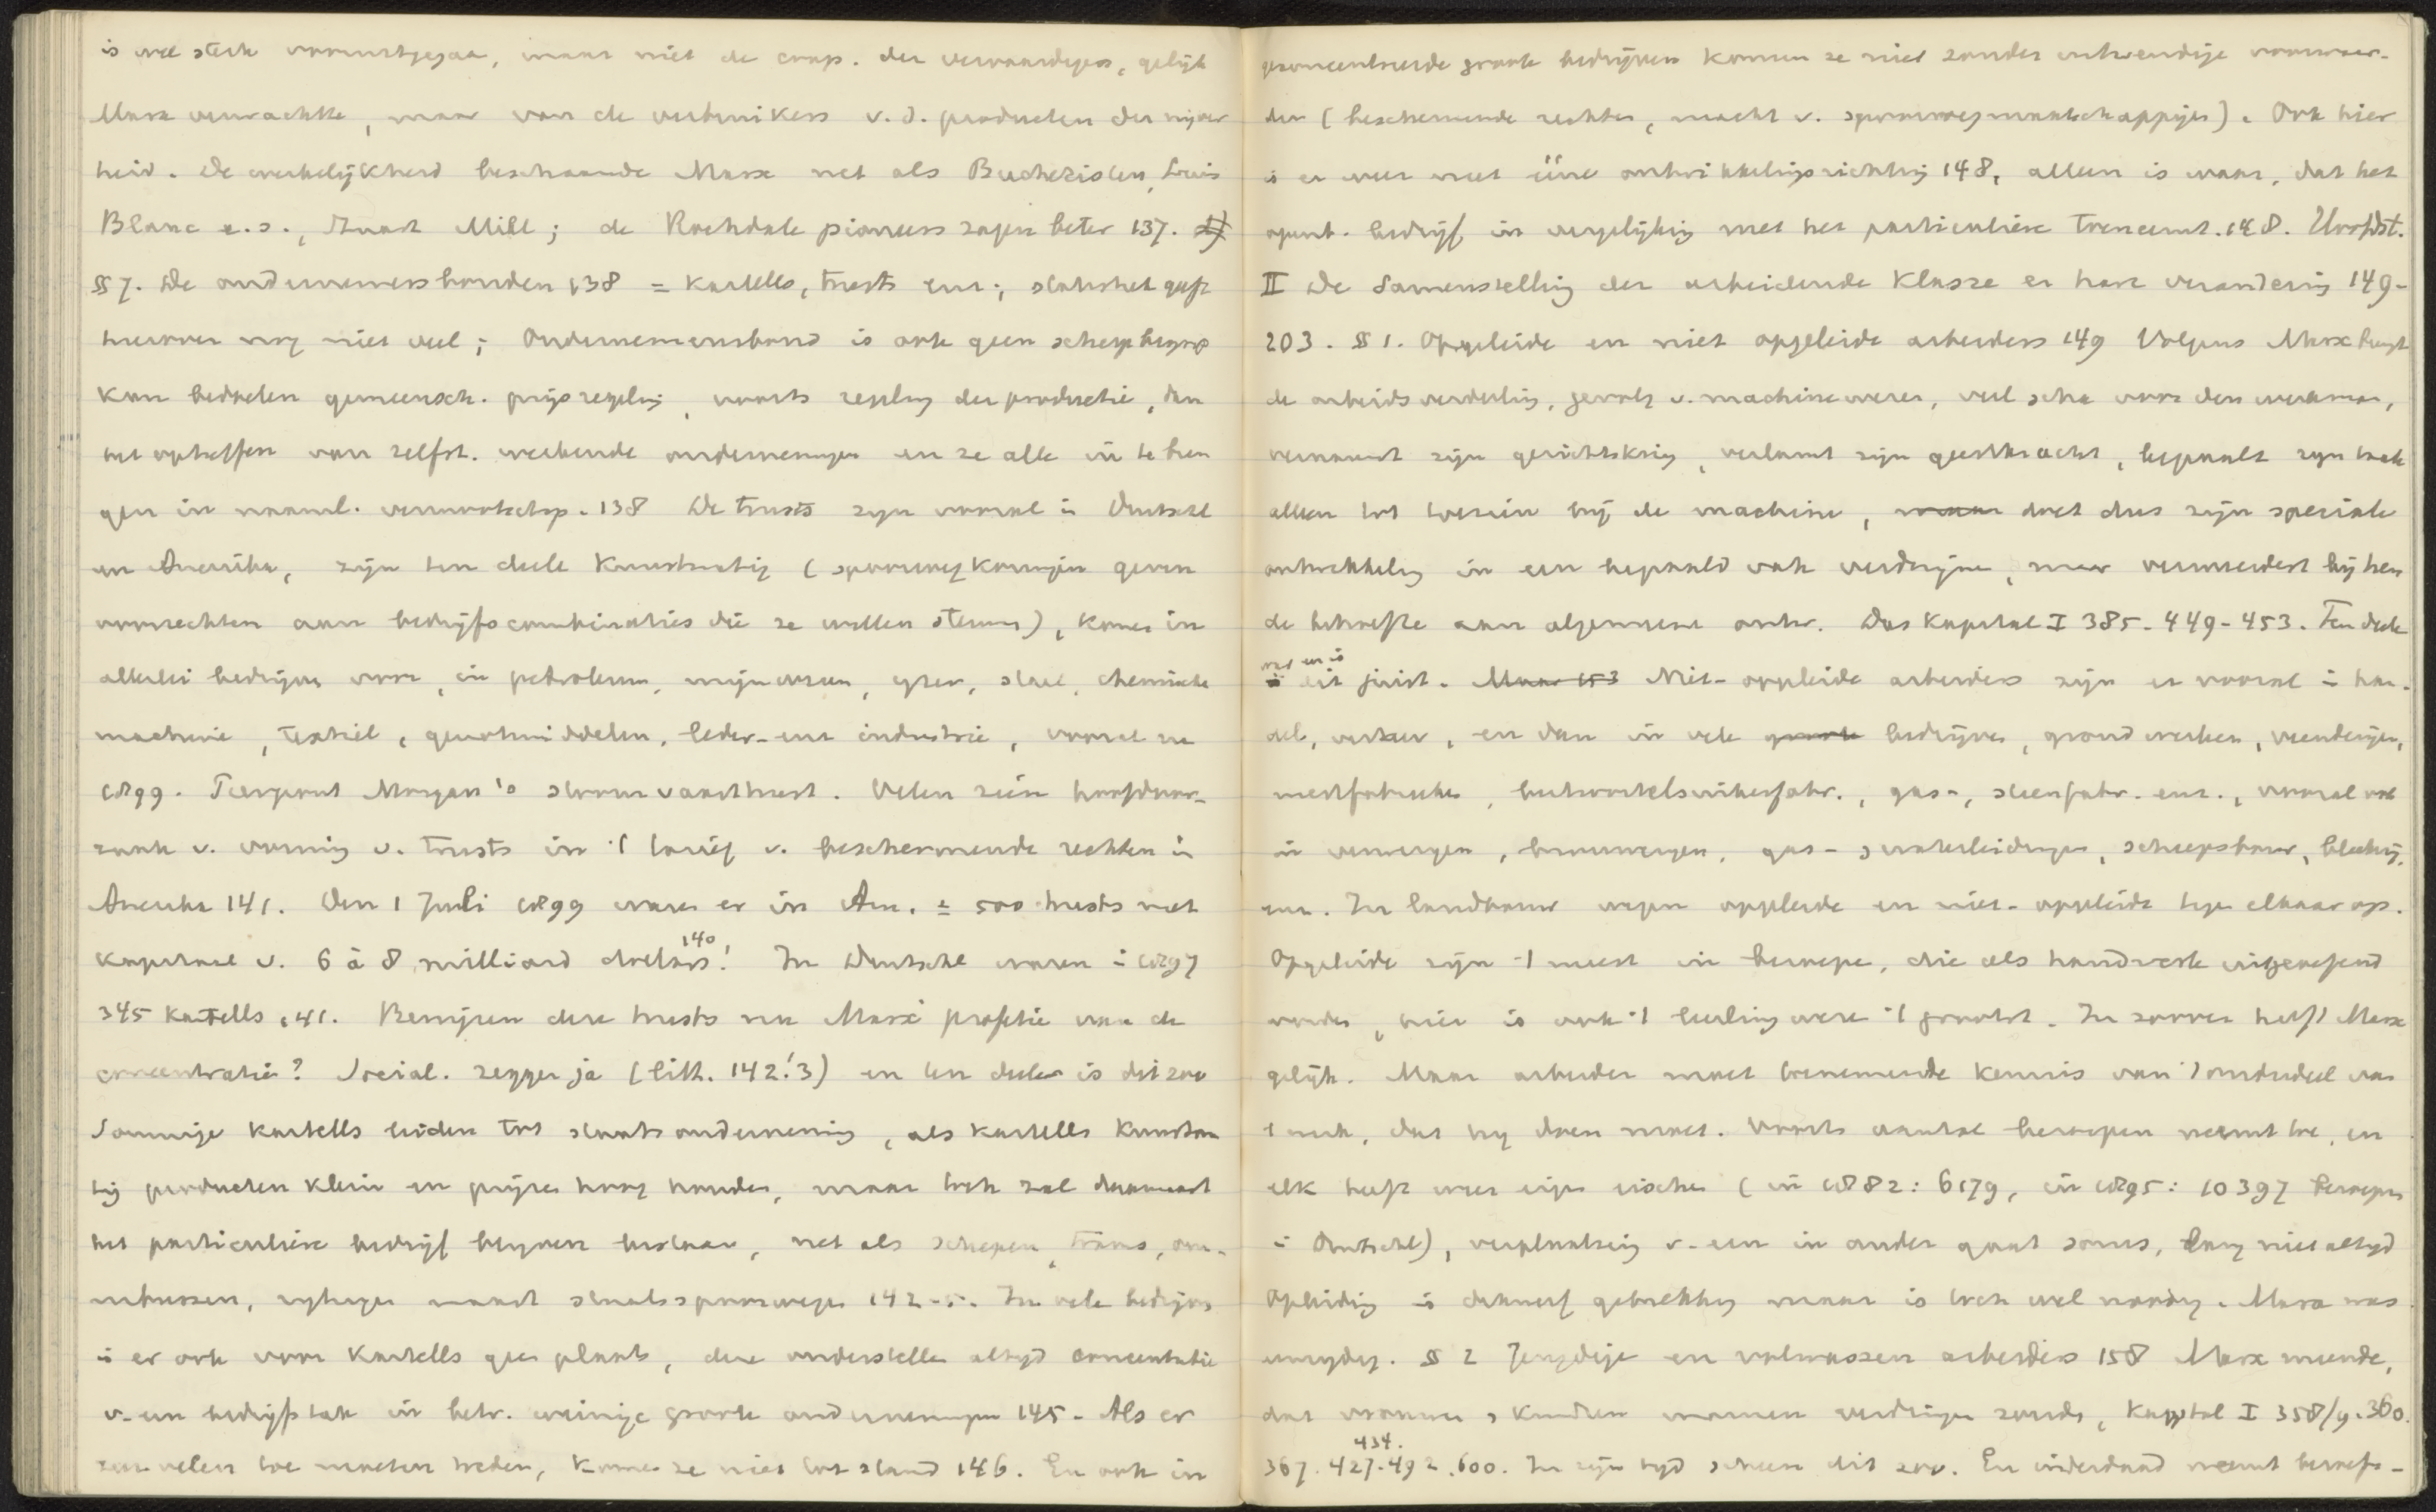 is wel sterk vooruitgegaan, maar niet de coop. der vervaardigers, gelijk
Marx verwachtte, maar van de verbruikers v. d. producten der nijver
heid. De werkelijkheid beschaamde Marx net als Buchezisten, Louis
Blanc e.a., Stuart Mill; de Rochdale pioneers zagen beter 137.
§ 7. De ondernemersbonden 138 = Kartells, trusts enz.; statistiek geeft
hierover nog niet veel; Ondernemersbond is ook geen scherp begrip
kan bedoelen gemeensch. prijsregeling, voorts regeling der productie, dan
het opheffen van zelfst. werkende ondernemingen en ze alle in te bren
gen in naaml. vennootschap. 138 De trusts zijn vooral in Duitschl
en Amerika, zijn ten deele kunstmatig (spoorwegkoningen geven
voorrechten aan bedrijfscombinaties die ze willen steunen), komen in
allerlei bedrijven voor, in petroleum, mijnwezen, yzer, staal, chemische
machine, textiel, genotmiddelen, leder- enz industrie, vooral na
1899. Pierpont Morgan's stoomvaarttrust. Velen zien hoofdoor-
zaak v. vorming v. trusts in 't tarief v. beschermende rechten in
Amerika 141. Den 1 Juli 1899 waren er in Am. ± 500 trusts met
kapitaal v. 6 à 8 milliard dollars 140! In Duitschl waren in 1897
345 Kartells 141. Bewijzen deze trusts nu Marx' profetie van de
concentratie? Social. zeggen ja (litt. 142.3) en ten deele is dit zoo
Sommige kartells leiden tot staatsonderneming, als kartells kunstma
tig producten klein en prijzen hoog houden, maar toch zal daarnaast
het particuliere bedrijf blijven bestaan, net als schepen, trams, om-
nibussen, rijtuigen naast staatsspoorwegen 142-5. In vele bedrijven
is er ook voor Kartells geen plaats, deze onderstellen altyd concentratie
v. een bedrijfstak in betr. weinige groote ondernemingen 145. Als er
zeer velen toe moeten treden, komen ze niet tot stand 146. En ook in
geconcentreerde groote bedrijven komen ze niet zonder uitwendige voorwaar-
den (beschermende rechten, macht v. spoorwegmaatschappijen). Ook hier
is er weer niet ééne ontwikkelingsrichting 148, alleen is waar, dat het
openb. bedrijf in vergelijking met het particuliere toeneemt. 148. Hoofdst.
II De Samenstelling der arbeidende Klasse en hare verandering 149-
203. § 1. Opgeleide en niet opgeleide arbeiders 149 Volgens Marx brengt
de arbeidsverdeling, gevolg v. machinewezen, veel scha voor den werkman,
vernauwt zijn gezichtskring, verlamt zijn geestkracht, bepaalt zijn taak
alleen tot toezien bij de machine, maar doet dus zijn speciale
ontwikkeling in een bepaald vak verdwijnen, maar vermeerdert bij hen
de behoefte aan algemeene ontw. Das Kapital I 385. 449-453. Ten deele
was en is dit juist. Maar 153 Niet-opgeleide arbeiders zijn er vooral in han-
del, verkeer, en dan in vele groote bedrijven, grondwerken, veenderijen,
mestfabrieken, beetwortelsuikerfabr., gas-, steenfabr. enz., vooral ook
in ververijen, brouwerijen, gas- & waterleidingen, scheepsbouw, bleekerij,
enz. In landbouw wegen opgeleide en niet-opgeleide tegen elkaar op.
Opgeleide zijn 't meest in beroepen, die als handwerk uitgeoefend
worden, hier is ook 't leerlingwezen 't grootst. In zoover heeft Marx
gelijk. Maar arbeider moet toenemende kennis van 't onderdeel van
't werk, dat hij doen moet. Voorts aantal beroepen neemt toe, en
elk heeft weer eigen eischen (in 1882: 6179, in 1895: 10397 beroepen
in Duitschl), verplaatsing v. een in ander gaat soms, lang niet altyd
Opleiding is dikwerf gebrekkig maar is toch wel noodig. Marx was
eenzydig. § 2 Jeugdige en volwassen arbeiders 158 Marx meende,
dat vrouwen & kinderen mannen verdringen zouden, Kapital I 358/9. 360.
367. 427. 434. 492. 600. In zijn tyd scheen dit zoo. En inderdaad neemt beroeps-